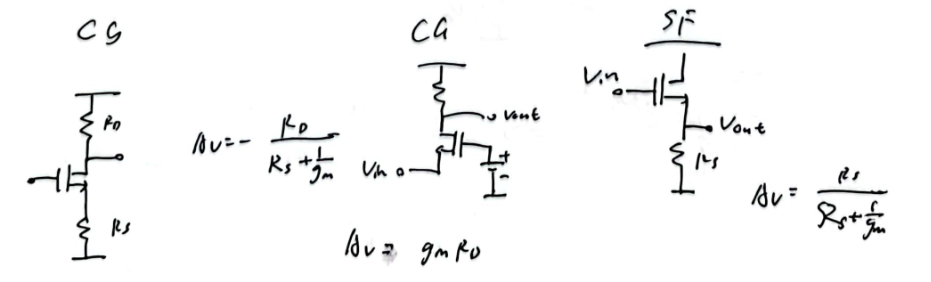 CS
CG
SF
RD
Av = - RD / (Rs + 1/gm)
Rs
Vout
Vin
+
-
Av = gm RD
Vin
Vout
Rs
Av = Rs / (Rs + 1/gm)